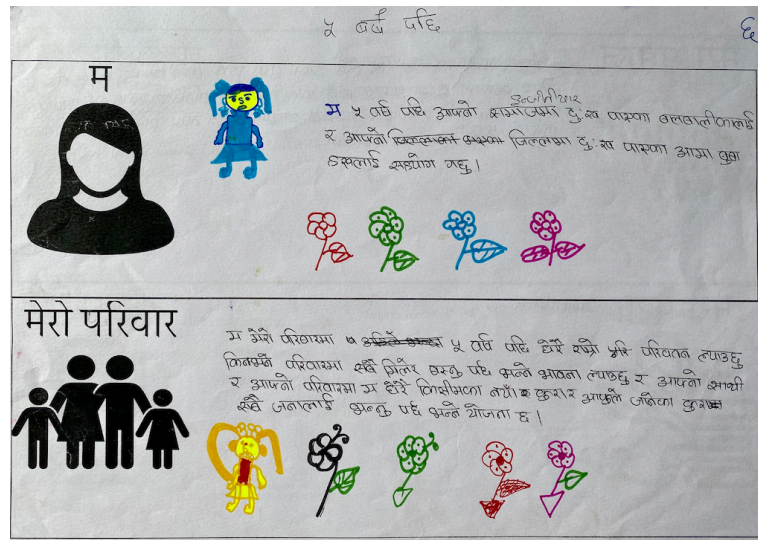 ५ वर्ष पछि
६
म
इन्जीनीयर
म ५ वर्ष पछि आफ्नो समाजमा दुःख पाएका बालबालीकालाई
र आफ्नो जिल्लामा दुःख पाएका आमा बुवा
हरुलाई सहयोग गर्छु।
मेरो परिवार
म मेरो परिवारमा ५ वर्ष पछि धेरै राम्रो परिवतन ल्याउछु
किनभने परिवारमा सबै मिलेर बस्नु पर्छ भन्ने भावना ल्याउछु र आफ्नो साथी
र आफ्नो परिवारमा म धेरै किसीमका नयाँ कुरा र आफुले जानेका कुरा
सबै जनालाई भन्नु पर्छ भन्ने योजना छ।